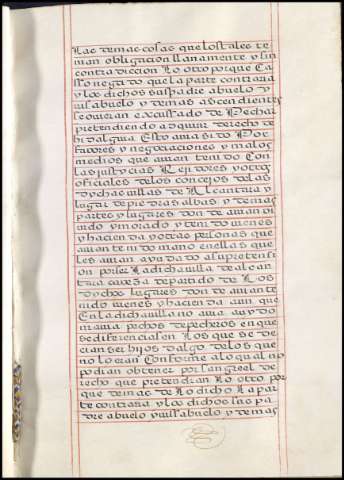 las demas cosas que los tales te
nian obligacion llanamente y sin
contradiccion lo otro porque ca
sso negado que la parte contraria
y los dichos sus padre abuelo y
uissabuelo y demas ascendientes
se ouieran excussado de pechar
pretendiendo adquirir derecho de
hidalguia esto auia sido por
fabores y negociaciones y malos
medios que auian tenido con
las justicias rejidores y otros
oficiales de los concejos de las
dychas uillas de alcantara y
lugar de piedras albas y demas
partes y lugares donde auian bi
uido y morado y tenido uienes
y hacienda y otras personas que
auian tenido mano en ellas que
les auian ayudado a su pretensi
on por ser la dicha uilla de alcan
tara caueza de partido de los
dychos lugares donde auian te
nido uienes y hacienda aun que
en la dicha uilla no auia auydo
ni auia pechos de pecheros en que
se diferenciasen los que se de
cian ser hijos dalgo de los que
no lo eran conforme a lo qual no
podian obtener por sangre el de
recho que pretendian lo otro por
que demas de lo dicho la par
te contraria y los dichos sus pa
dre abuelo y uissabuelo y demas